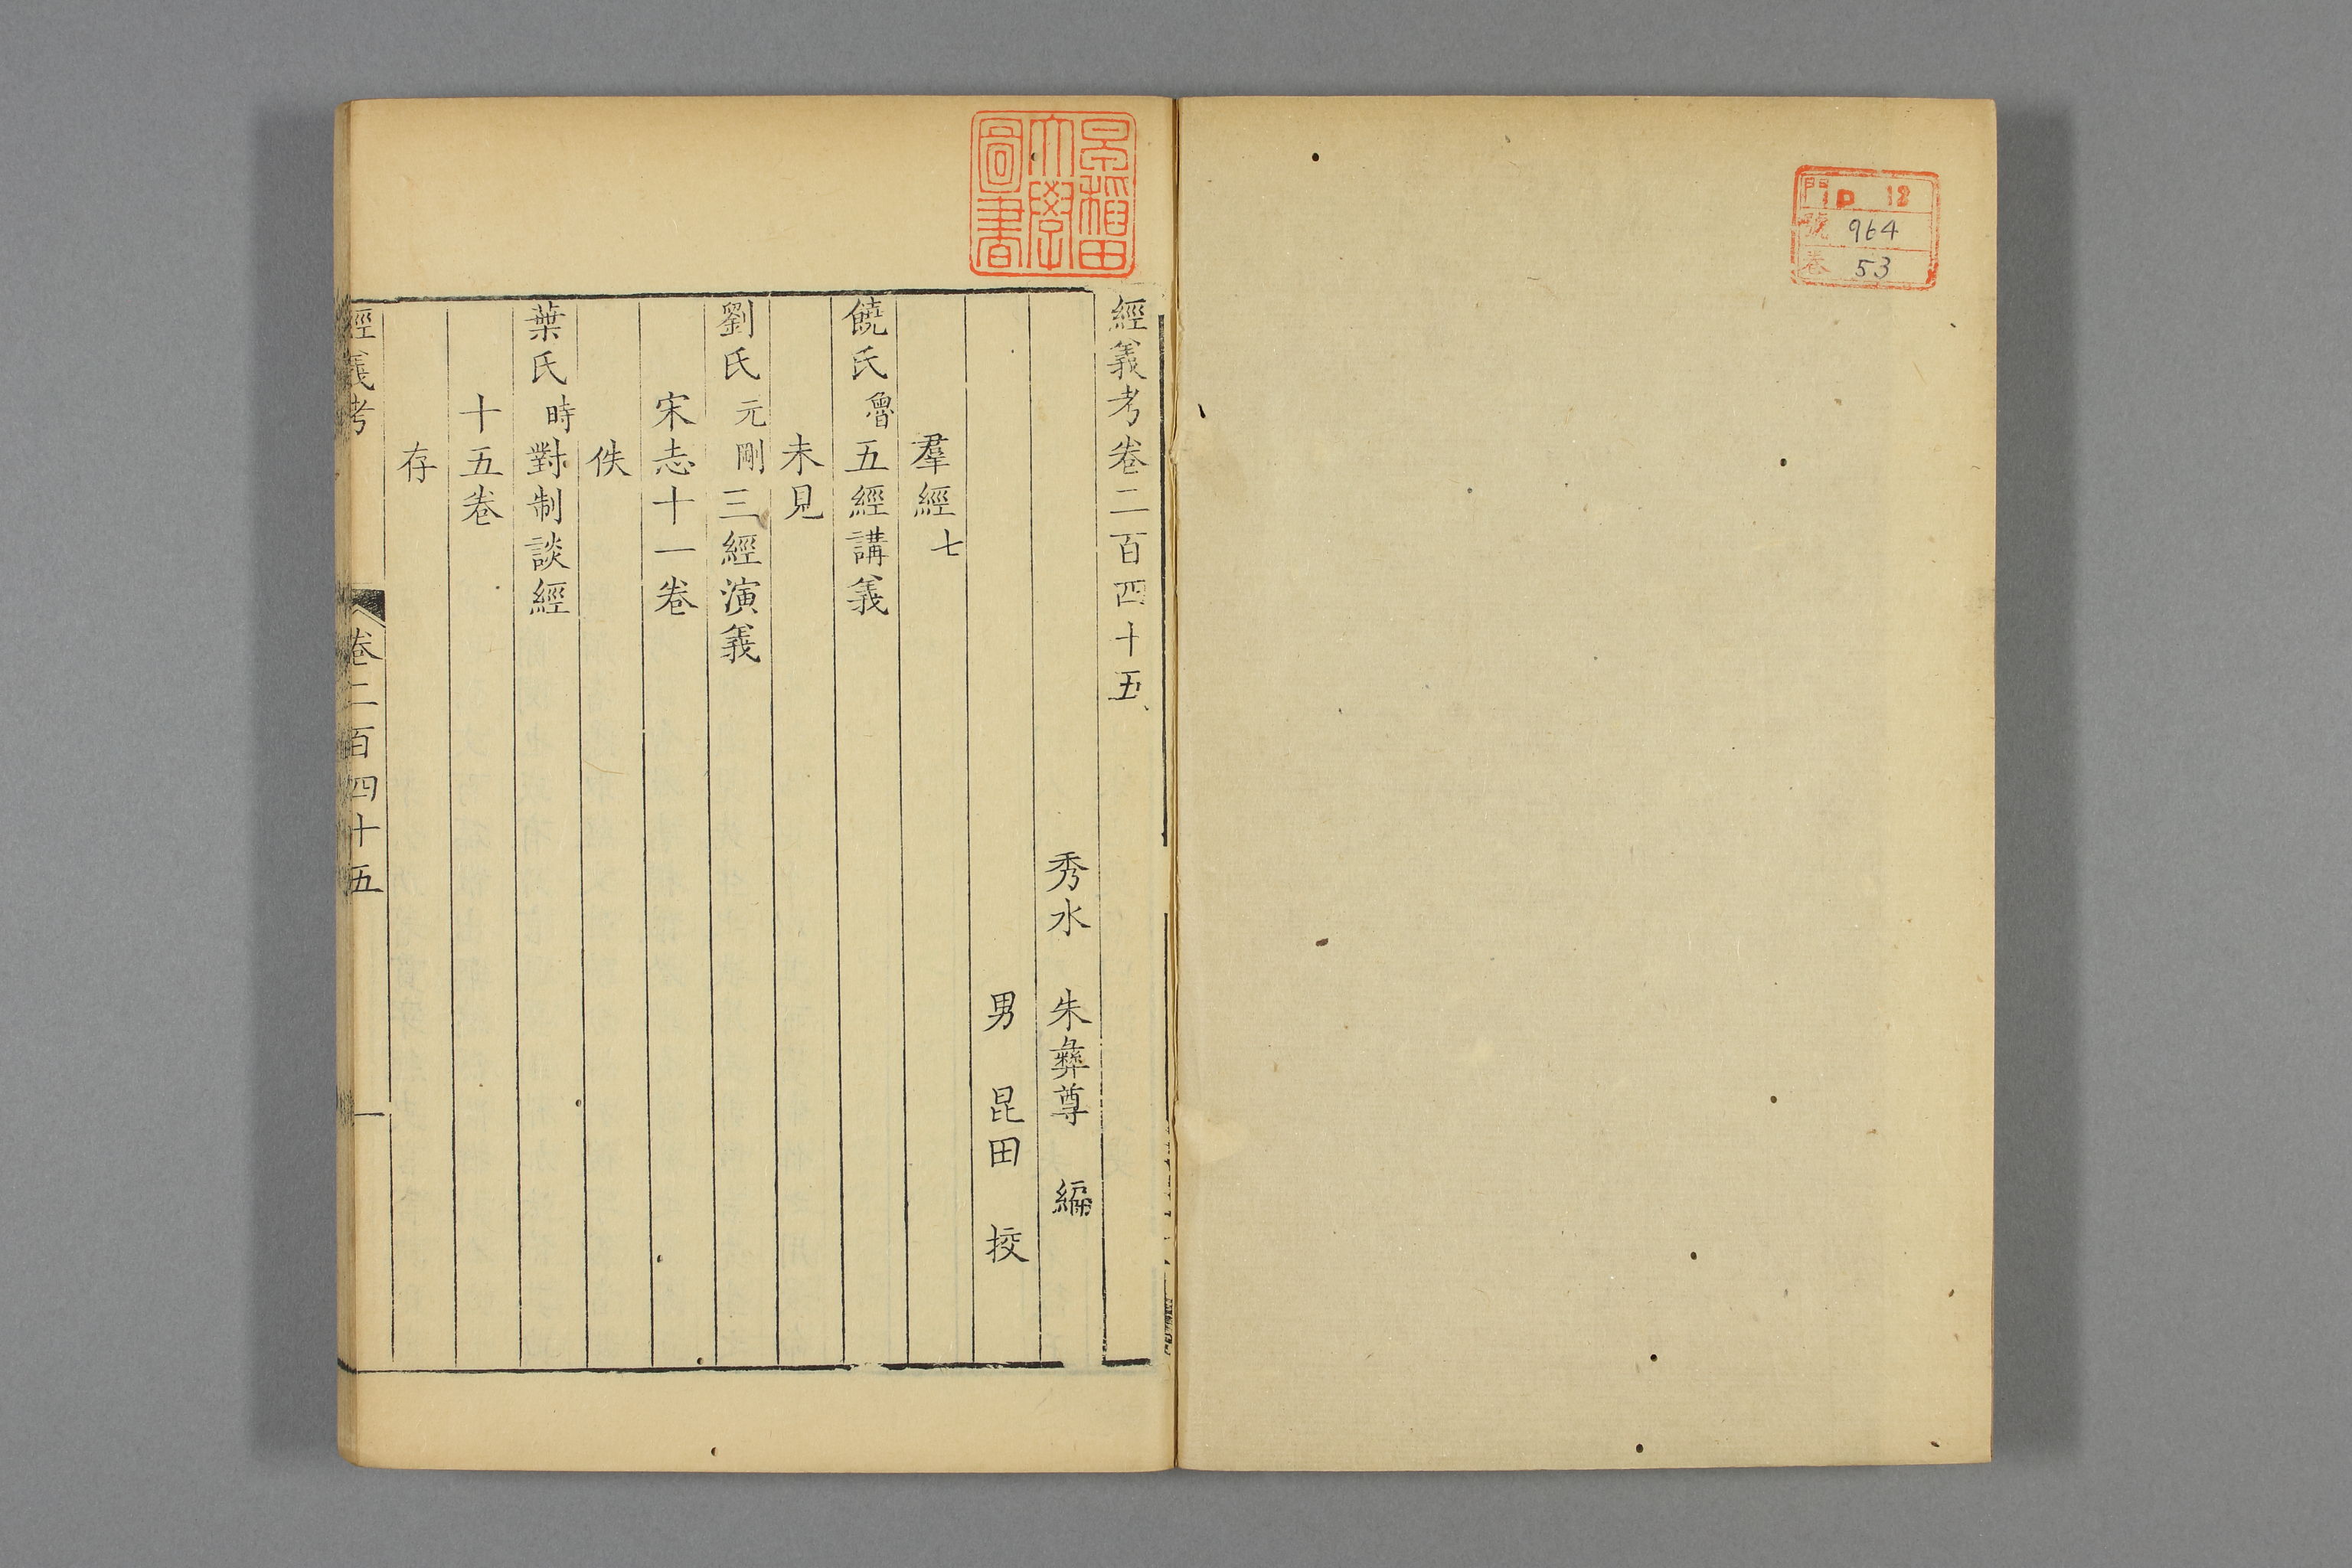 門 D 12
號 964
卷 53
早稲田大學圖書
經義考卷二百四十五
秀水 朱彝尊 編
男 昆田 挍
羣經七
饒氏魯五經講義
未見
劉氏元剛三經演義
宋志十一卷
佚
葉氏時對制談經
十五卷
存
經義考 卷二百四十五 一